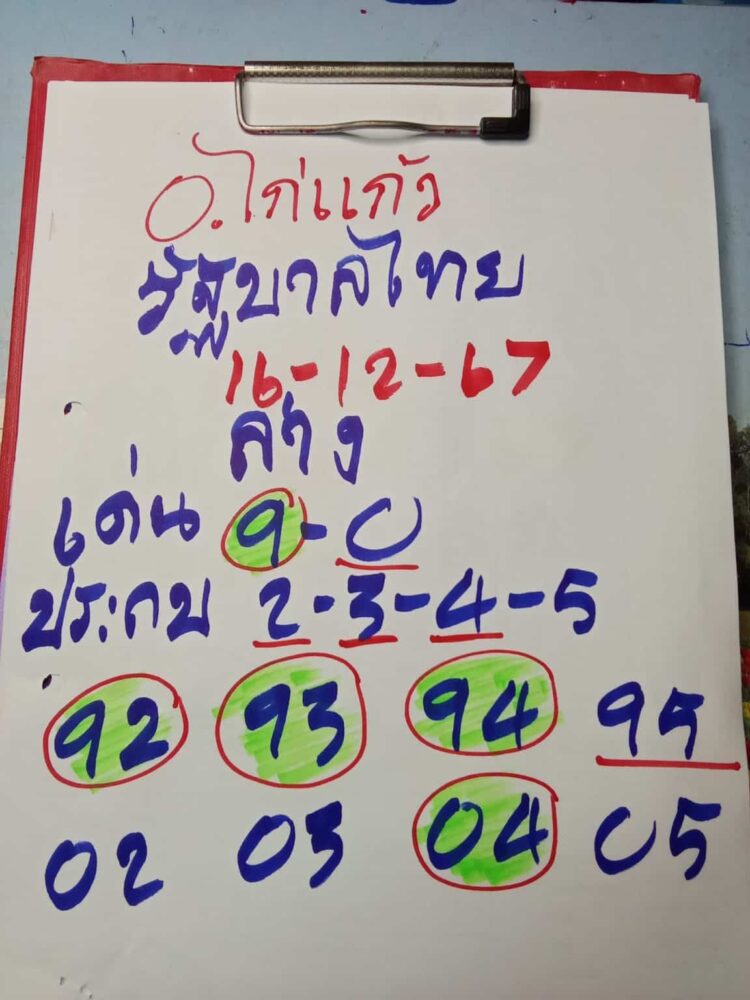 อ.ไก่แก้ว
รัฐบาลไทย
16-12-67
ล่าง
เด่น 9-0
ประกบ 2-3-4-5
92 93 94 95
02 03 04 05